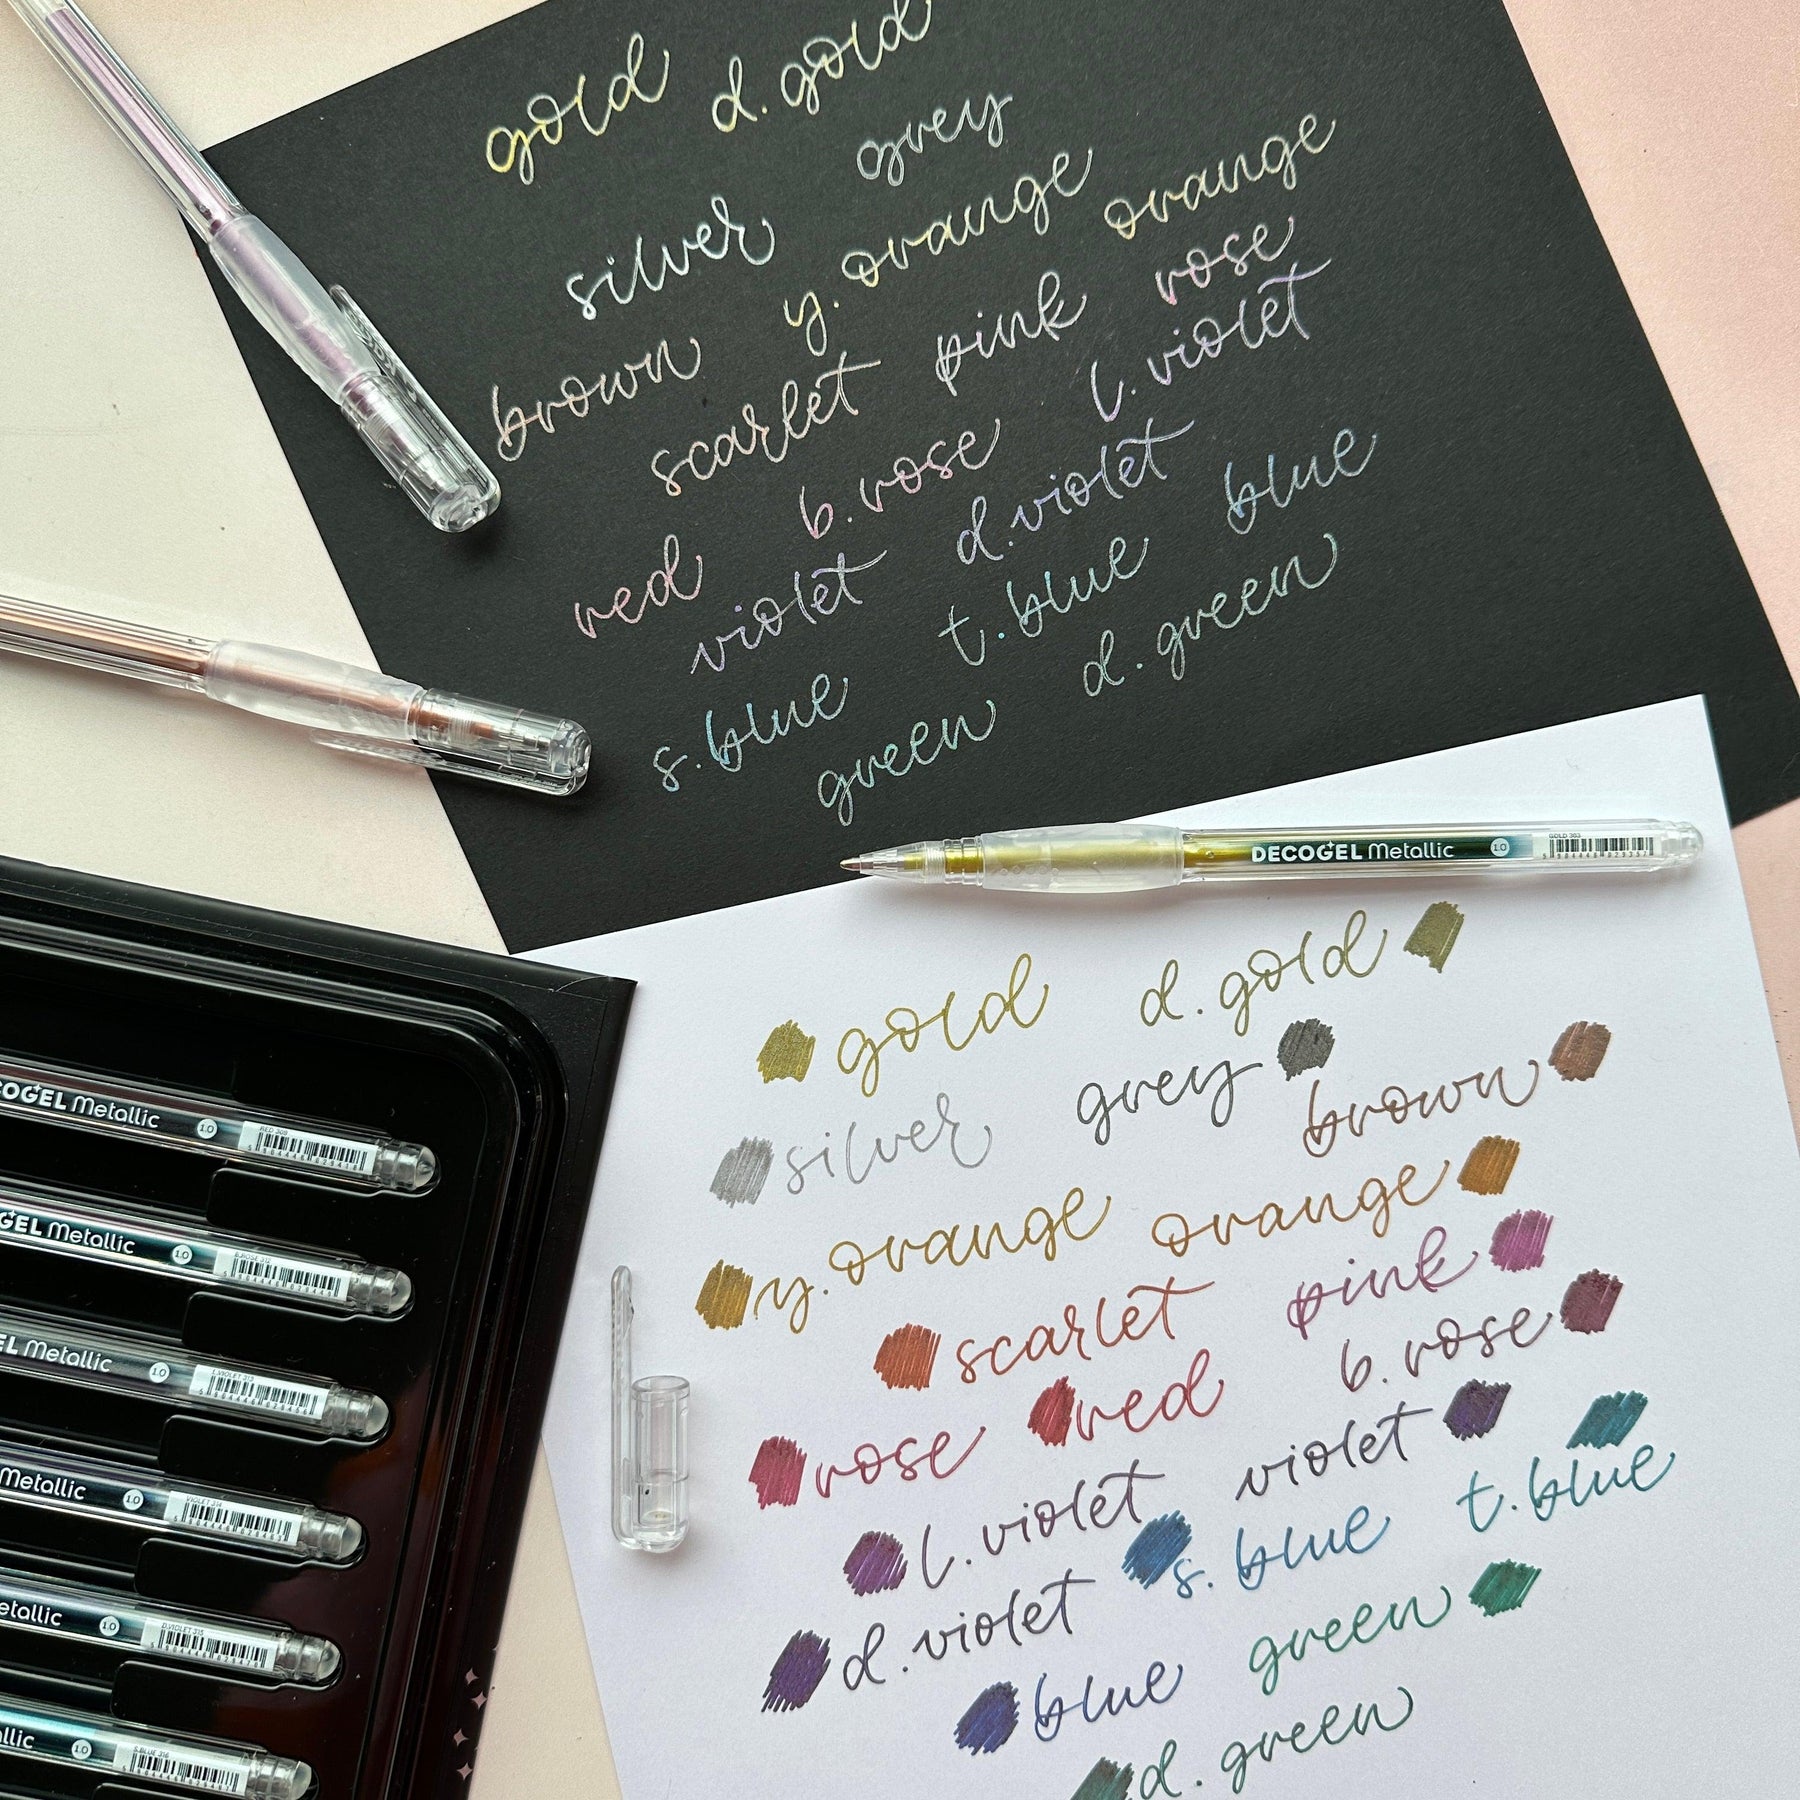 gold d.gold
silver grey
brown y.orange orange
scarlet pink rose
red b.rose l.violet
violet d.violet
s.blue t.blue blue
green d.green
DECOGEL Metallic 1.0 GOLD 303
gold d.gold
silver grey brown
y.orange orange
scarlet pink
rose red b.rose
l.violet violet
d.violet s.blue t.blue
blue green
d.green
COGEL Metallic 1.0 RED 308
GEL Metallic 1.0 B.ROSE 312
EL Metallic 1.0 L.VIOLET 313
Metallic 1.0 VIOLET 314
etallic 1.0 D.VIOLET 315
allic 1.0 S.BLUE 316